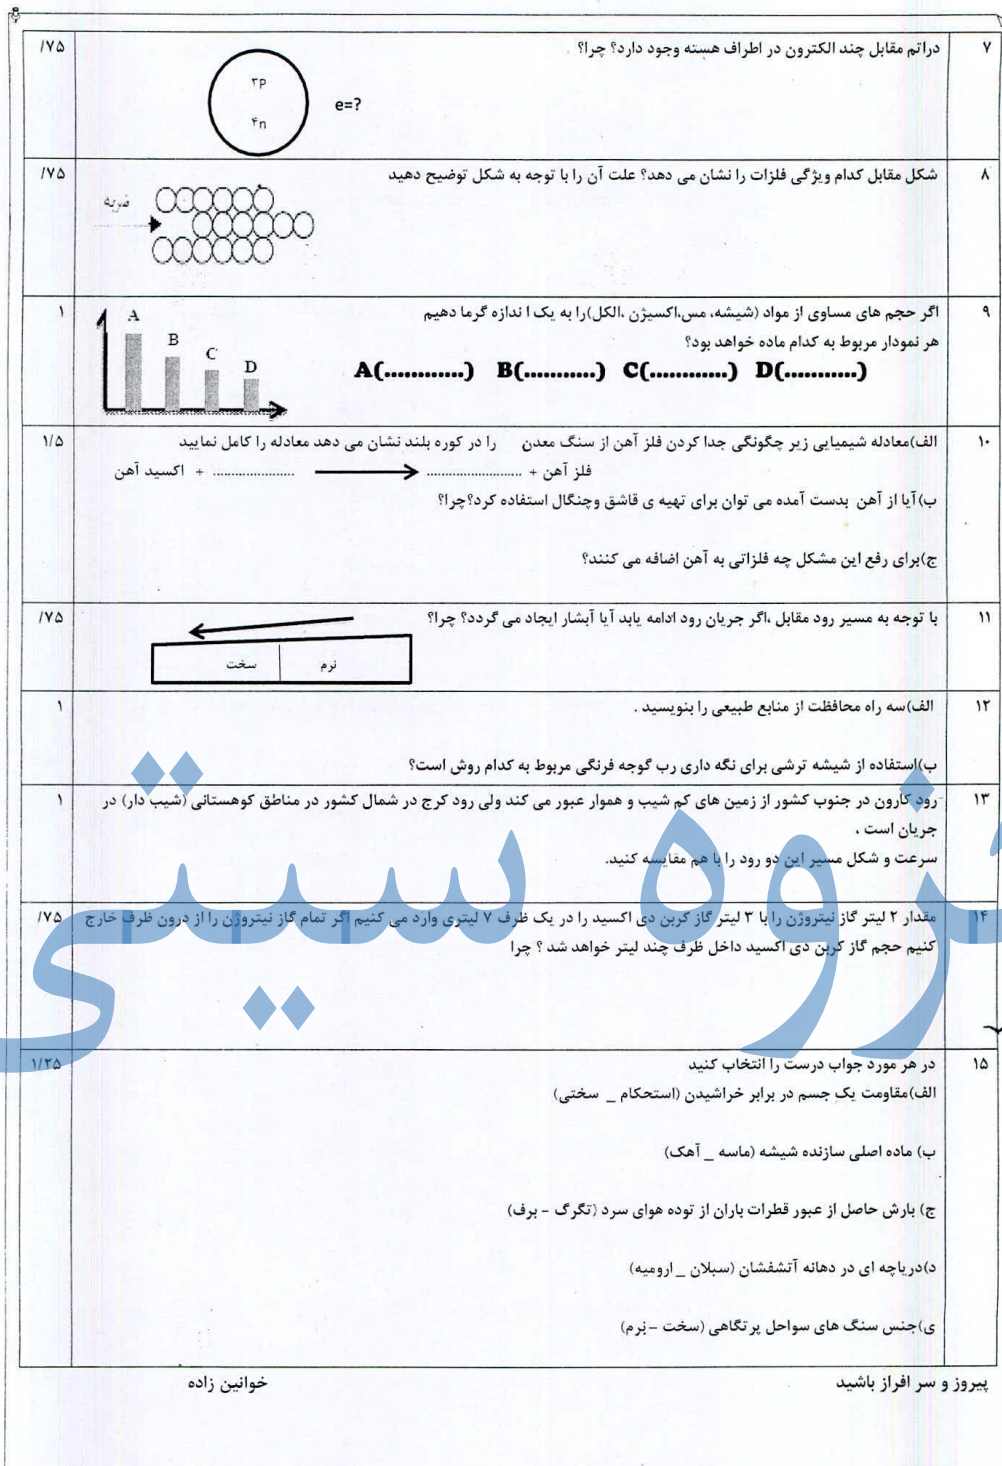 ۷
در اتم مقابل چند الکترون در اطراف هسته وجود دارد؟ چرا؟
/۷۵
۳p
۴n
e=?
۸
شکل مقابل کدام ویژگی فلزات را نشان می دهد؟ علت آن را با توجه به شکل توضیح دهید
/۷۵
ضربه
۹
اگر حجم های مساوی از مواد (شیشه، مس،اکسیژن ،الکل)را به یک ا ندازه گرما دهیم
۱
هر نمودار مربوط به کدام ماده خواهد بود؟
A(............) B(...........) C(............) D(...........)
A
B
C
D
۱۰
الف)معادله شیمیایی زیر چگونگی جدا کردن فلز آهن از سنگ معدن را در کوره بلند نشان می دهد معادله را کامل نمایید
۱/۵
فلز آهن + ........................ ..................... + اکسید آهن
ب)آیا از آهن بدست آمده می توان برای تهیه ی قاشق وچنگال استفاده کرد؟چرا؟
ج)برای رفع این مشکل چه فلزاتی به آهن اضافه می کنند؟
۱۱
با توجه به مسیر رود مقابل ،اگر جریان رود ادامه یابد آیا آبشار ایجاد می گردد؟ چرا؟
/۷۵
نرم
سخت
۱۲
الف)سه راه محافظت از منابع طبیعی را بنویسید .
۱
ب)استفاده از شیشه ترشی برای نگه داری رب گوجه فرنگی مربوط به کدام روش است؟
۱۳
رود کارون در جنوب کشور از زمین های کم شیب و هموار عبور می کند ولی رود کرج در شمال کشور در مناطق کوهستانی (شیب دار) در
۱
جریان است ،
سرعت و شکل مسیر این دو رود را با هم مقایسه کنید.
۱۴
مقدار ۲ لیتر گاز نیتروژن را با ۳ لیتر گاز کربن دی اکسید را در یک ظرف ۷ لیتری وارد می کنیم اگر تمام گاز نیتروژن را از درون ظرف خارج
/۷۵
کنیم حجم گاز کربن دی اکسید داخل ظرف چند لیتر خواهد شد ؟ چرا
۱۵
در هر مورد جواب درست را انتخاب کنید
۱/۲۵
الف)مقاومت یک جسم در برابر خراشیدن (استحکام _ سختی)
ب) ماده اصلی سازنده شیشه (ماسه _ آهک)
ج) بارش حاصل از عبور قطرات باران از توده هوای سرد (تگرگ - برف)
د)دریاچه ای در دهانه آتشفشان (سبلان _ ارومیه)
ی)جنس سنگ های سواحل پرتگاهی (سخت - نرم)
پیروز و سر افراز باشید
خوانین زاده